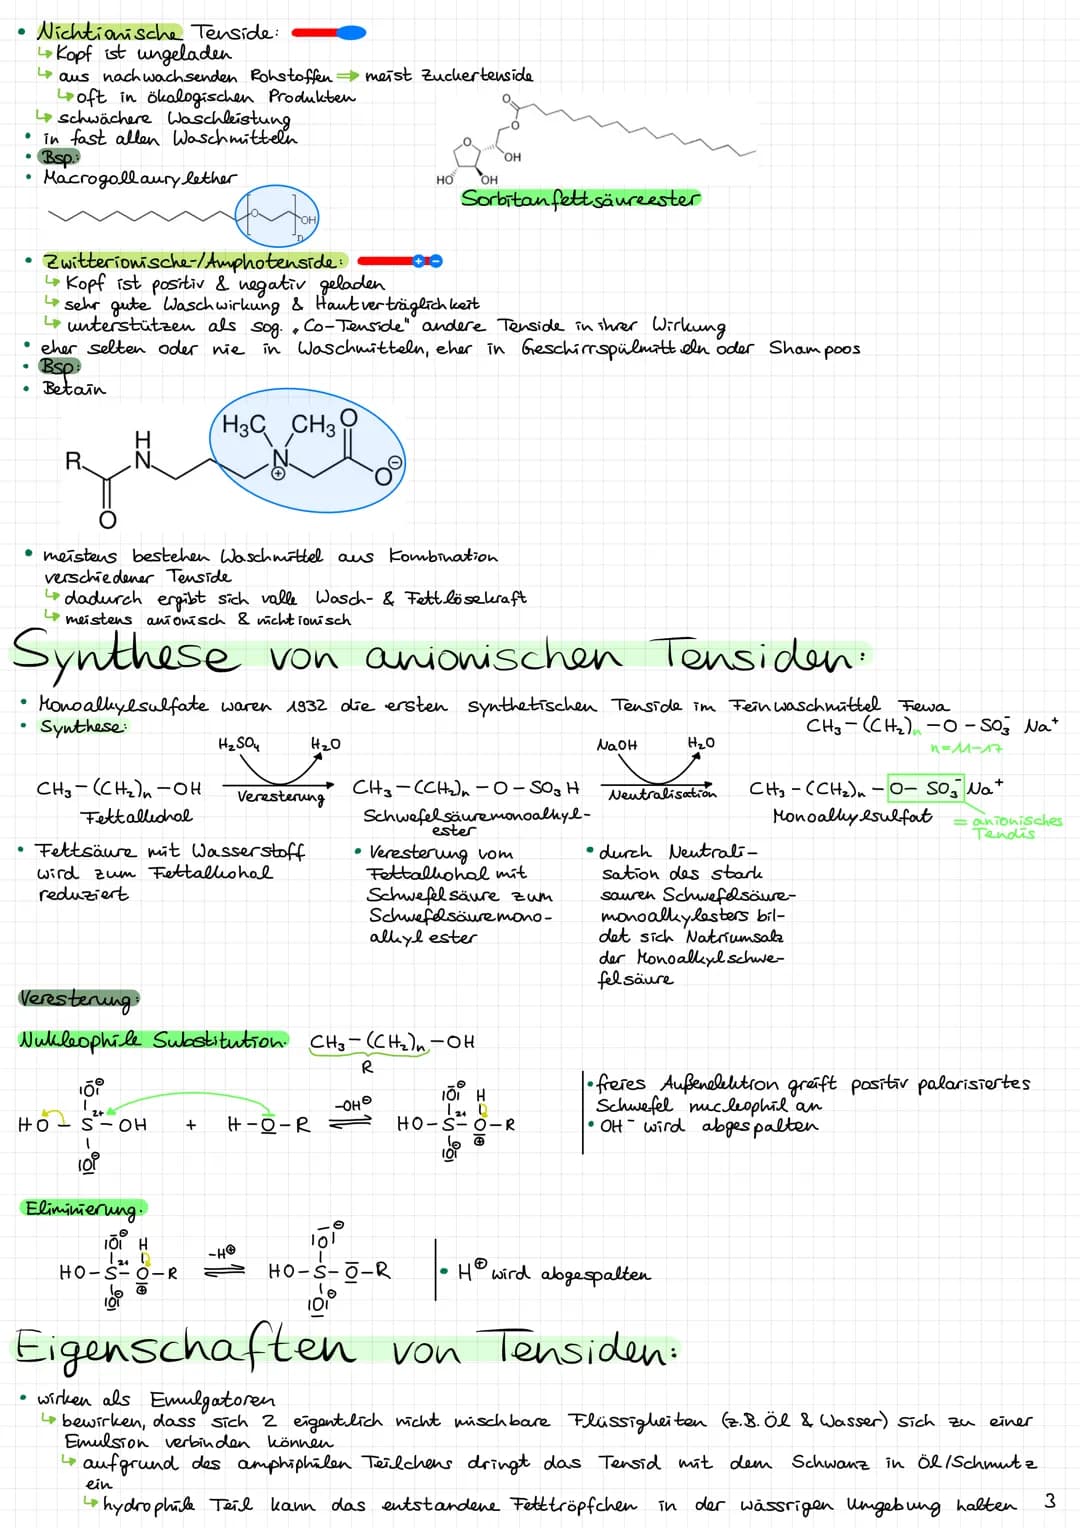 • Nichtionische Tenside:
↳ Kopf ist ungeladen
↳ aus nachwachsenden Rohstoffen ⇒ meist Zuckertenside
↳ oft in ökologischen Produkten
↳ schwächere Waschleistung
• in fast allen Waschmitteln
• Bsp.:
• Macrogollaurylether
O
OH
n
O
O
O
OH
HO
OH
Sorbitanfettsäureester
• Zwitterionische-/Amphotenside:
↳ Kopf ist positiv & negativ geladen
↳ sehr gute Waschwirkung & Hautverträglichkeit
↳ unterstützen als sog. „Co-Tenside" andere Tenside in ihrer Wirkung
• eher selten oder nie in Waschmitteln, eher in Geschirrspülmitteln oder Shampoos
• Bsp:
• Betain
H3C CH3 O
H
R N N⊕ O⊖
O
• meistens bestehen Waschmittel aus Kombination
verschiedener Tenside
↳ dadurch ergibt sich volle Wasch- & Fettlösekraft
↳ meistens anionisch & nichtionisch
Synthese von anionischen Tensiden:
• Monoalkylsulfate waren 1932 die ersten synthetischen Tenside im Feinwaschmittel Fewa
• Synthese:
CH₃-(CH₂)ₙ-O-SO₃⁻ Na⁺
n=11-17
H₂SO₄ H₂O NaOH H₂O
CH₃-(CH₂)ₙ-OH Veresterung CH₃-(CH₂)ₙ-O-SO₃H Neutralisation CH₃-(CH₂)ₙ-O-SO₃⁻ Na⁺
Fettalkohol Schwefelsäuremonoalkyl-
ester
Monoalkylsulfat = anionisches
Tendis
• Fettsäure mit Wasserstoff
wird zum Fettalkohol
reduziert
• Veresterung vom
Fettalkohol mit
Schwefelsäure zum
Schwefelsäuremono-
alkylester
• durch Neutrali-
sation des stark
sauren Schwefelsäure-
monoalkylesters bil-
det sich Natriumsalz
der Monoalkylschwe-
felsäure
Veresterung:
Nukleophile Substitution: CH₃-(CH₂)ₙ-OH
R
|O̅|⊖
HO-S²⁺-OH + H-O-R -OH⊖ ⇌ HO-S²⁺-O⊕-R
|O|⊖
|O̅|⊖ H
|O|⊖
• freies Außenelektron greift positiv polarisiertes
Schwefel nucleophil an
• OH⁻ wird abgespalten
Eliminierung:
|O̅|⊖ H
HO-S²⁺-O⊕-R -H⊕ ⇌ HO-S-O̅-R
|O|⊖
|O̅|⊖
|O|⊖
• H⊕ wird abgespalten
Eigenschaften von Tensiden:
• wirken als Emulgatoren
↳ bewirken, dass sich 2 eigentlich nicht mischbare Flüssigkeiten (z.B. Öl & Wasser) sich zu einer
Emulsion verbinden können
↳ aufgrund des amphiphilen Teilchens dringt das Tensid mit dem Schwanz in Öl/Schmutz
ein
↳ hydrophile Teil kann das entstandene Fetttröpfchen in der wässrigen Umgebung halten
3